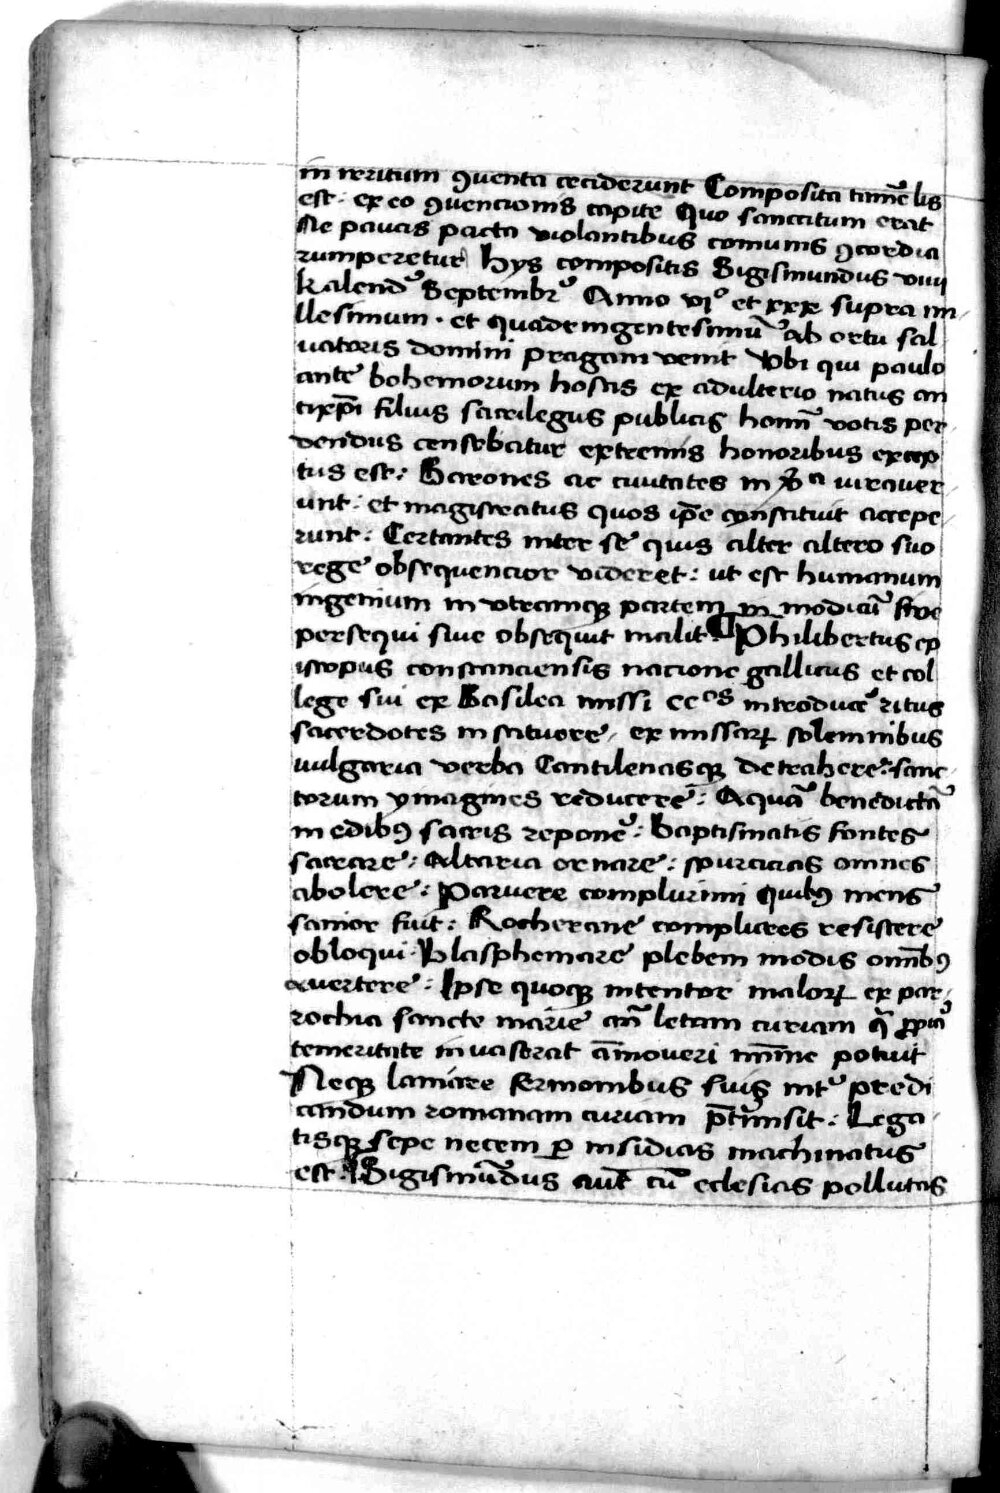 in reritum ꝯuenta ceciderunt Composita tamē lis
est· ex eo ꝯuencionis capite Quo sanccitum erat
Ne paucis pacta violantibus comunis ꝯcordia
rumperetur Hys compositis Sigismundus viiij
kalend Septembr Anno vi° et xxx supra mi
llesimum · et quadringentesimū ab ortu sal
uatoris domini pragam venit Vbi qui paulo
ante bohemorum hostis ex adulterio natus an
tixpī filius sacrilegus publicis homī votis per
dendus censebatur extremis honoribus excep
tus est : Barones ac ciuitates in vͣba iurauer
unt : et magistratus quos ip̄e constituit accepe
runt : Certantes inter se quis alter altero suo
rege obsequencior videret : ut est humanum
ingenium in vtramqꝫ partem in modicū siue
persequi siue obsequit malit ¶ Philibertus ep
iscopus constanciensis nacione gallicus et col
lege sui ex Basilea missi cc͞as introducē ritus
sacerdotes instituere, ex missarꝝ solemnibus
uulgaria verba Cantilenasqꝫ detrahere : sanc
torum ymagines reducere : Aquā benedictā
in edibꝰ sacris reponē : baptismatis fontes
sacrare : Altaria ornare : spurcicias omnes
abolere : Paruere complurimi Quibꝰ mens
sanior fuit : Rocherane complices resistere
obloqui · Blasphemare plebem modis omībꝰ
auertere : Ipse quoqꝫ intentor malorꝝ ex par
rochia sancte marie an̄ letam curiam q̄ ꝓpiā
temeritate inuaserat āmoueri mīme potuit
Neqꝫ laniare sermonibus suis int predi
candum romanam curiam p̄tmisit : Lega
tisqꝫ sepe necem ꝑ insidias machinatus
est : Sigismūdus aut cū eclesias pollutas